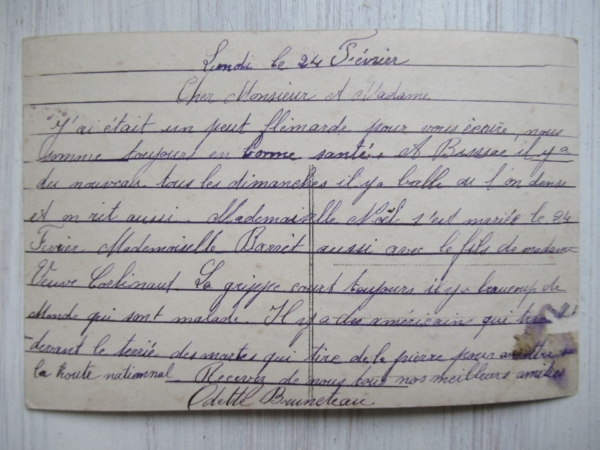 Lundi le 24 Février
Cher Monsieur et Madame
J'ai était un peut flémarde pour vous écrire, nous
somme toujour en bonne santé. A Bassac il y a
du nouveau tous les dimanches il y a balle ou l'on danse
et on rit aussi. Mademoiselle Noël s'est mariée le 24
Fevrier Mademoiselle Barret aussi avec le fils de madame
Veuve. La grippe court toujours il y a beaucoup de
Monde qui sont malade. Il y a des américain qui
devant le des qui tire de la pierre pour
la Route nationnal. Recevez de nous tous nos meilleurs amitiés
Odette Bruneteau